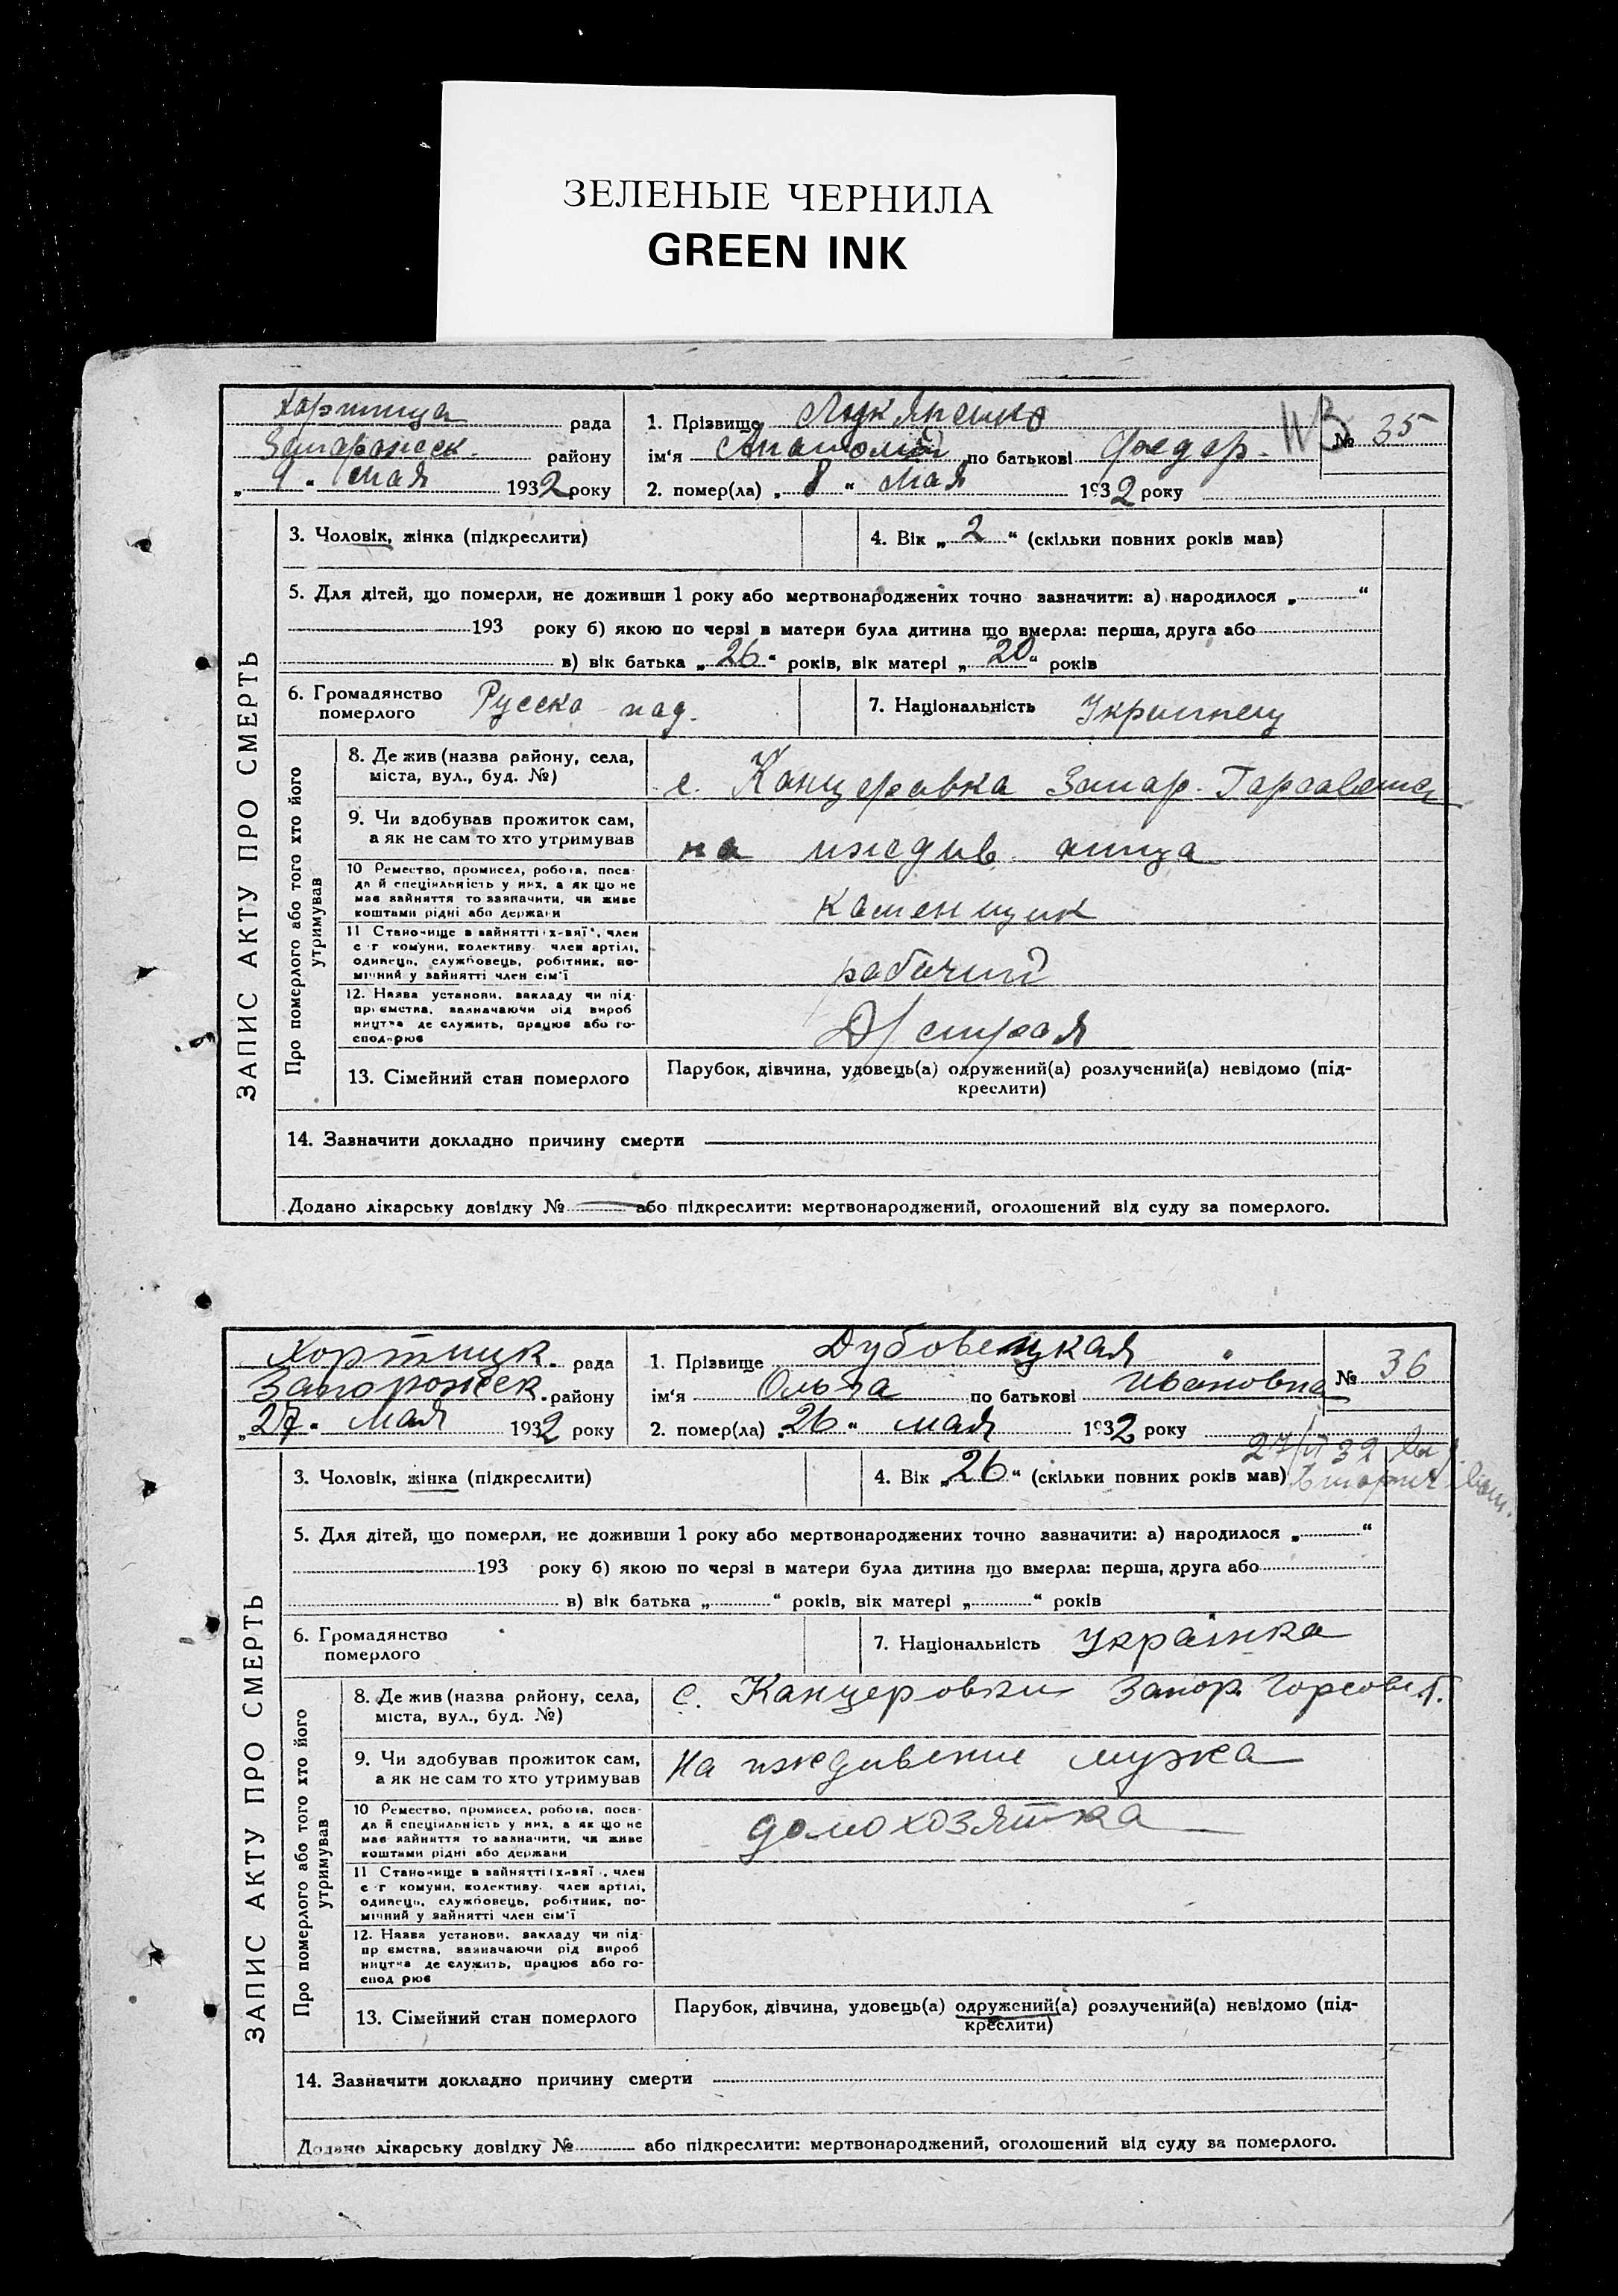 ЗЕЛЕНЫЕ ЧЕРНИЛА
GREEN INK
Хортица рада
Запорожск. району
„ 9 " мая 1932 року
1. Прізвище Лукʼяненко
ім'я Анатолий по батькові Федор. № 35
2. помер(ла) „ 8 " мая 1932 року
ЗАПИС АКТУ ПРО СМЕРТЬ
3. Чоловік, жінка (підкреслити)
4. Вік „ 2 " (скільки повних років мав)
5. Для дітей, що померли, не доживши 1 року або мертвонароджених точно зазначити: а) народилося „ "
193 року б) якою по черзі в матери була дитина що вмерла: перша, друга або
в) вік батька „ 26 " років, вік матері „ 20 " років
6. Громадянство
померлого
Русско под.
7. Національність Украинец
Про померлого або того хто його
утримував
8. Де жив (назва району, села,
міста, вул., буд. №)
с. Канцеровка Запор. Горсовета
9. Чи здобував прожиток сам,
а як не сам то хто утримував
на иждив. отца
10 Ремество, промисел, робота, поса-
да й спеціяльність у них, а як що не
має зайняття то зазначити, чи живе
коштами рідні або держави
каменщик
11 Становище в зайнятті (х-вяї), член
с-г комуни, колективу член артілі,
одинець, службовець, робітник, по-
мічний у зайнятті член сім'ї
рабочий
12. Назва установи, закладу чи під-
приємства, зазначаючи рід вироб
ництва де служить, працює або го-
сподарює
Д/строя
13. Сімейний стан померлого
Парубок, дівчина, удовець(а) одружений(а) розлучений(а) невідомо (під-
креслити)
14. Зазначити докладно причину смерти
Додано лікарську довідку № або підкреслити: мертвонароджений, оголошений від суду за померлого.
Хортицк. рада
Запорожск. району
„ 27 " мая 1932 року
1. Прізвище Дубовецкая
ім'я Ольга по батькові Ивановна № 36
2. помер(ла) „ 26 " мая 1932 року
ЗАПИС АКТУ ПРО СМЕРТЬ
3. Чоловік, жінка (підкреслити)
4. Вік „ 26 " (скільки повних років мав)
5. Для дітей, що померли, не доживши 1 року або мертвонароджених точно зазначити: а) народилося „ "
193 року б) якою по черзі в матери була дитина що вмерла: перша, друга або
в) вік батька „ " років, вік матері „ " років
6. Громадянство
померлого
7. Національність Українка
Про померлого або того хто його
утримував
8. Де жив (назва району, села,
міста, вул., буд. №)
с. Канцеровки Запор. Горсовет.
9. Чи здобував прожиток сам,
а як не сам то хто утримував
На иждивение мужа
10 Ремество, промисел, робота, поса-
да й спеціяльність у них, а як що не
має зайняття то зазначити, чи живе
коштами рідні або держави
домохозяйка
11 Становище в зайнятті (х-вяї), член
с-г комуни, колективу член артілі,
одинець, службовець, робітник, по-
мічний у зайнятті член сім'ї
12. Назва установи, закладу чи під-
приємства, зазначаючи рід вироб
ництва де служить, працює або го-
сподарює
13. Сімейний стан померлого
Парубок, дівчина, удовець(а) одружений(а) розлучений(а) невідомо (під-
креслити)
14. Зазначити докладно причину смерти
Додано лікарську довідку № або підкреслити: мертвонароджений, оголошений від суду за померлого.